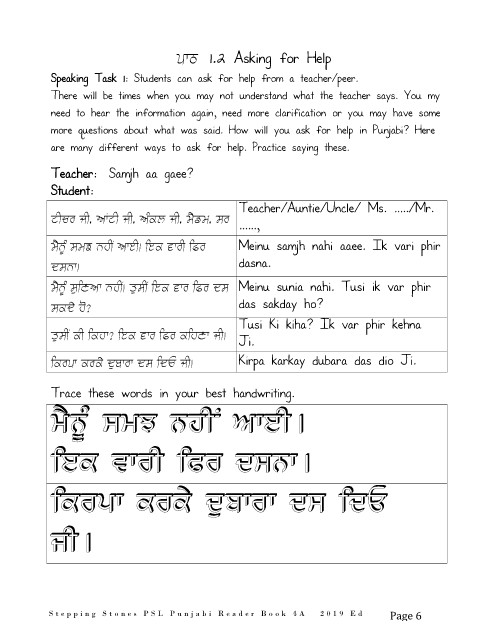 ਪਾਠ 1.2 Asking for Help
Speaking Task 1: Students can ask for help from a teacher/peer.
There will be times when you may not understand what the teacher says. You my
need to hear the information again, need more clarification or you may have some
more questions about what was said. How will you ask for help in Punjabi? Here
are many different ways to ask for help. Practice saying these.
Teacher: Samjh aa gaee?
Student:
ਟੀਚਰ ਜੀ, ਆਂਟੀ ਜੀ, ਅੰਕਲ ਜੀ, ਮੈਡਮ, ਸਰ
Teacher/Auntie/Uncle/ Ms. ...../Mr.
......,
ਮੈਨੂੰ ਸਮਝ ਨਹੀਂ ਆਈ। ਇਕ ਵਾਰੀ ਫਿਰ
ਦਸਨਾ।
Meinu samjh nahi aaee. Ik vari phir
dasna.
ਮੈਨੂੰ ਸੁਣਿਆ ਨਹੀ। ਤੁਸੀਂ ਇਕ ਵਾਰ ਫਿਰ ਦਸ
ਸਕਦੇ ਹੋ?
Meinu sunia nahi. Tusi ik var phir
das sakday ho?
ਤੁਸੀਂ ਕੀ ਕਿਹਾ? ਇਕ ਵਾਰ ਫਿਰ ਕਹਿਣਾ ਜੀ।
Tusi Ki kiha? Ik var phir kehna
Ji.
ਕਿਰਪਾ ਕਰਕੇ ਦੁਬਾਰਾ ਦਸ ਦਿਓ ਜੀ।
Kirpa karkay dubara das dio Ji.
Trace these words in your best handwriting.
ਮੈਨੂੰ ਸਮਝ ਨਹੀਂ ਆਈ।
ਇਕ ਵਾਰੀ ਫਿਰ ਦਸਨਾ।
ਕਿਰਪਾ ਕਰਕੇ ਦੁਬਾਰਾ ਦਸ ਦਿਓ
ਜੀ।
Stepping Stones PSL Punjabi Reader Book 4A 2019 Ed Page 6